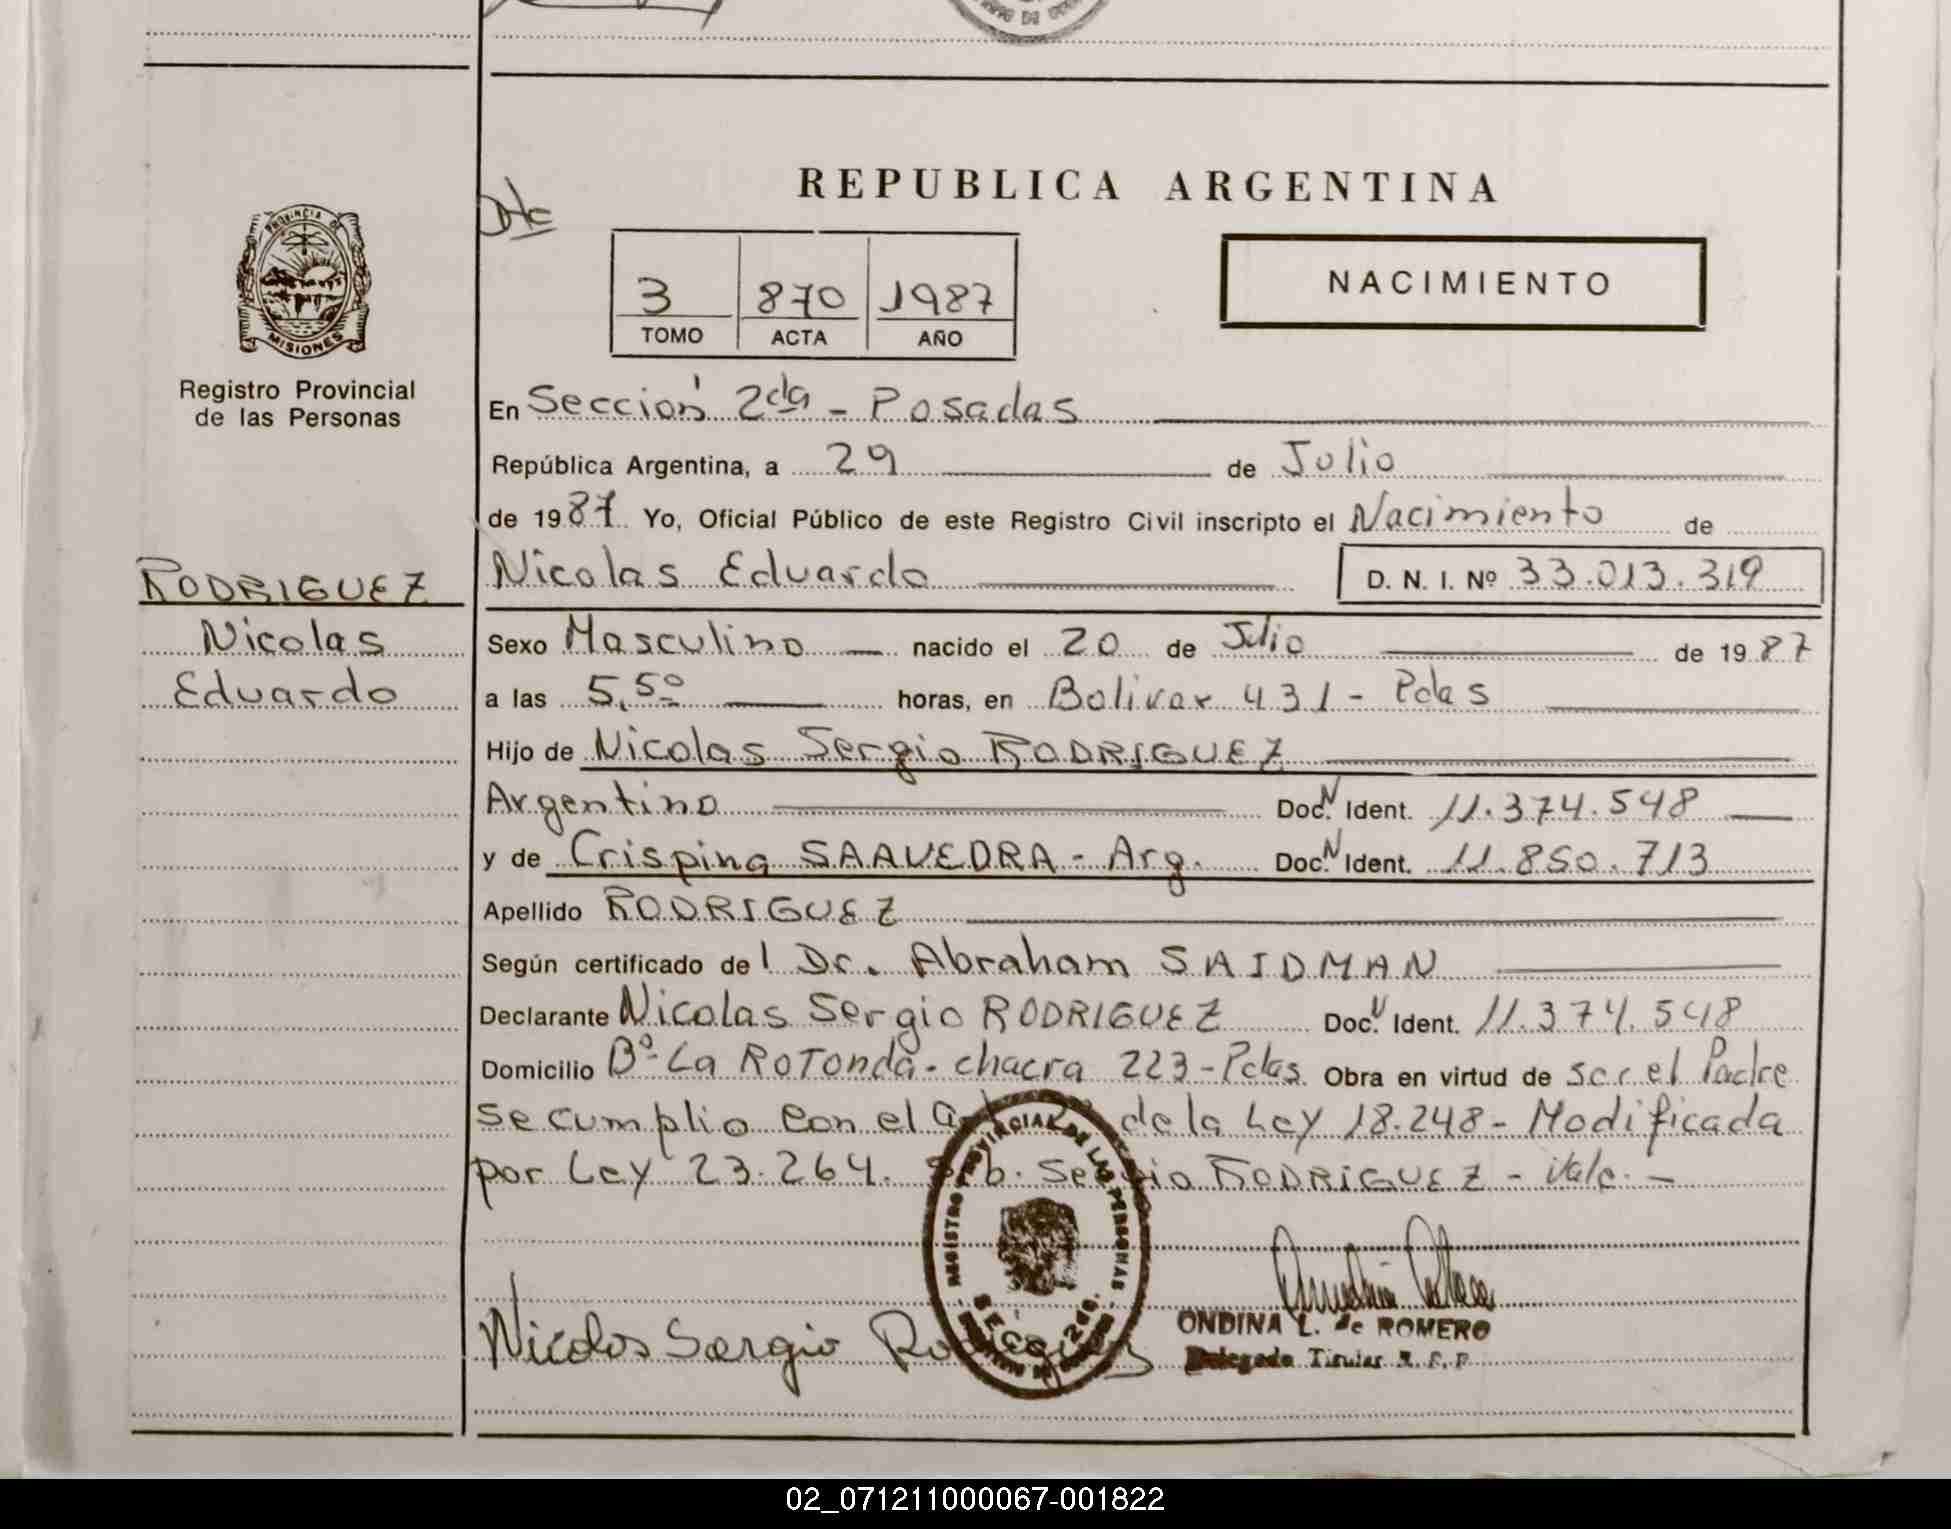 REPUBLICA ARGENTINA
PROVINCIA DE
MISIONES
Registro Provincial
de las Personas
3 870 1987
TOMO ACTA AÑO
NACIMIENTO
En Sección 2da - Posadas
República Argentina, a 29 de Julio
de 1987 Yo, Oficial Público de este Registro Civil inscripto el Nacimiento de
Nicolas Eduardo D. N. I. Nº 33.013.319
RODRIGUEZ
Nicolas
Eduardo
Sexo Masculino nacido el 20 de Julio de 1987
a las 5,50 horas, en Bolivar 431 - Pdas
Hijo de Nicolas Sergio RODRIGUEZ
Argentino Doc. N Ident. 11.374.548
y de Crispina SAAVEDRA - Arg. Doc. N Ident. 11.850.713
Apellido RODRIGUEZ
Según certificado del Dr. Abraham SAIDMAN
Declarante Nicolas Sergio RODRIGUEZ Doc. N Ident. 11.374.548
Domicilio Bº La ROTonda - chacra 223 - Pdas Obra en virtud de ser el Padre
se cumplio con el de la Ley 18.248 - Modificada
por Ley 23.264. Sergio RODRIGUEZ - Vale. -
PROVINCIAL DE LAS PERSONAS
Nicolas Sergio Rodriguez
ONDINA L. de ROMERO
Delegada Titular R. P. P.
02_071211000067-001822